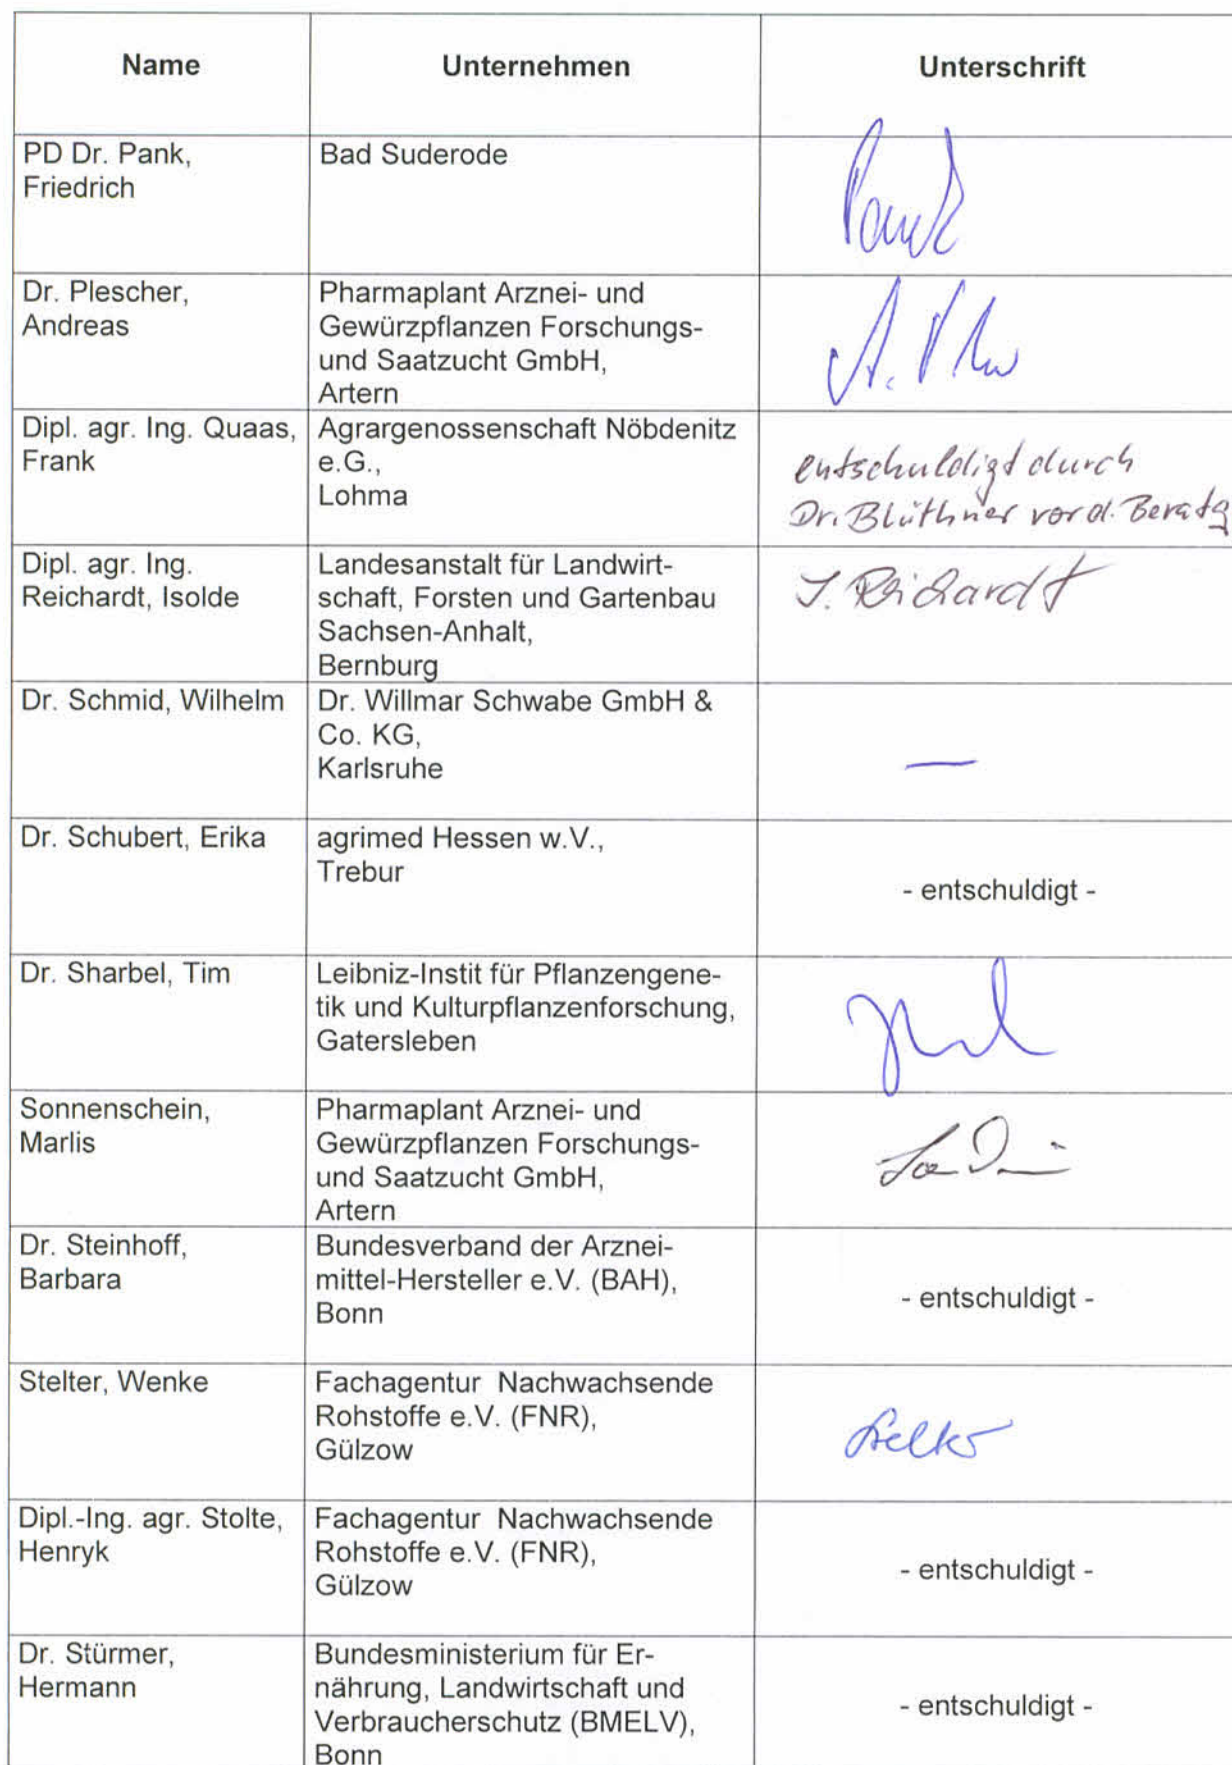 Name Unternehmen Unterschrift
PD Dr. Pank, Bad Suderode
Friedrich
Pank
Dr. Plescher, Pharmaplant Arznei- und
Andreas Gewürzpflanzen Forschungs-
und Saatzucht GmbH,
Artern
Dipl. agr. Ing. Quaas, Agrargenossenschaft Nöbdenitz
Frank e.G., entschuldigt durch
Lohma Dr. Blüthner vor d. Beratg
Dipl. agr. Ing. Landesanstalt für Landwirt-
Reichardt, Isolde schaft, Forsten und Gartenbau I. Reichardt
Sachsen-Anhalt,
Bernburg
Dr. Schmid, Wilhelm Dr. Willmar Schwabe GmbH &
Co. KG,
Karlsruhe —
Dr. Schubert, Erika agrimed Hessen w.V.,
Trebur - entschuldigt -
Dr. Sharbel, Tim Leibniz-Instit für Pflanzengene-
tik und Kulturpflanzenforschung,
Gatersleben
Sonnenschein, Pharmaplant Arznei- und
Marlis Gewürzpflanzen Forschungs-
und Saatzucht GmbH,
Artern
Dr. Steinhoff, Bundesverband der Arznei-
Barbara mittel-Hersteller e.V. (BAH),
Bonn - entschuldigt -
Stelter, Wenke Fachagentur Nachwachsende
Rohstoffe e.V. (FNR),
Gülzow Stelter
Dipl.-Ing. agr. Stolte, Fachagentur Nachwachsende
Henryk Rohstoffe e.V. (FNR),
Gülzow - entschuldigt -
Dr. Stürmer, Bundesministerium für Er-
Hermann nährung, Landwirtschaft und
Verbraucherschutz (BMELV), - entschuldigt -
Bonn